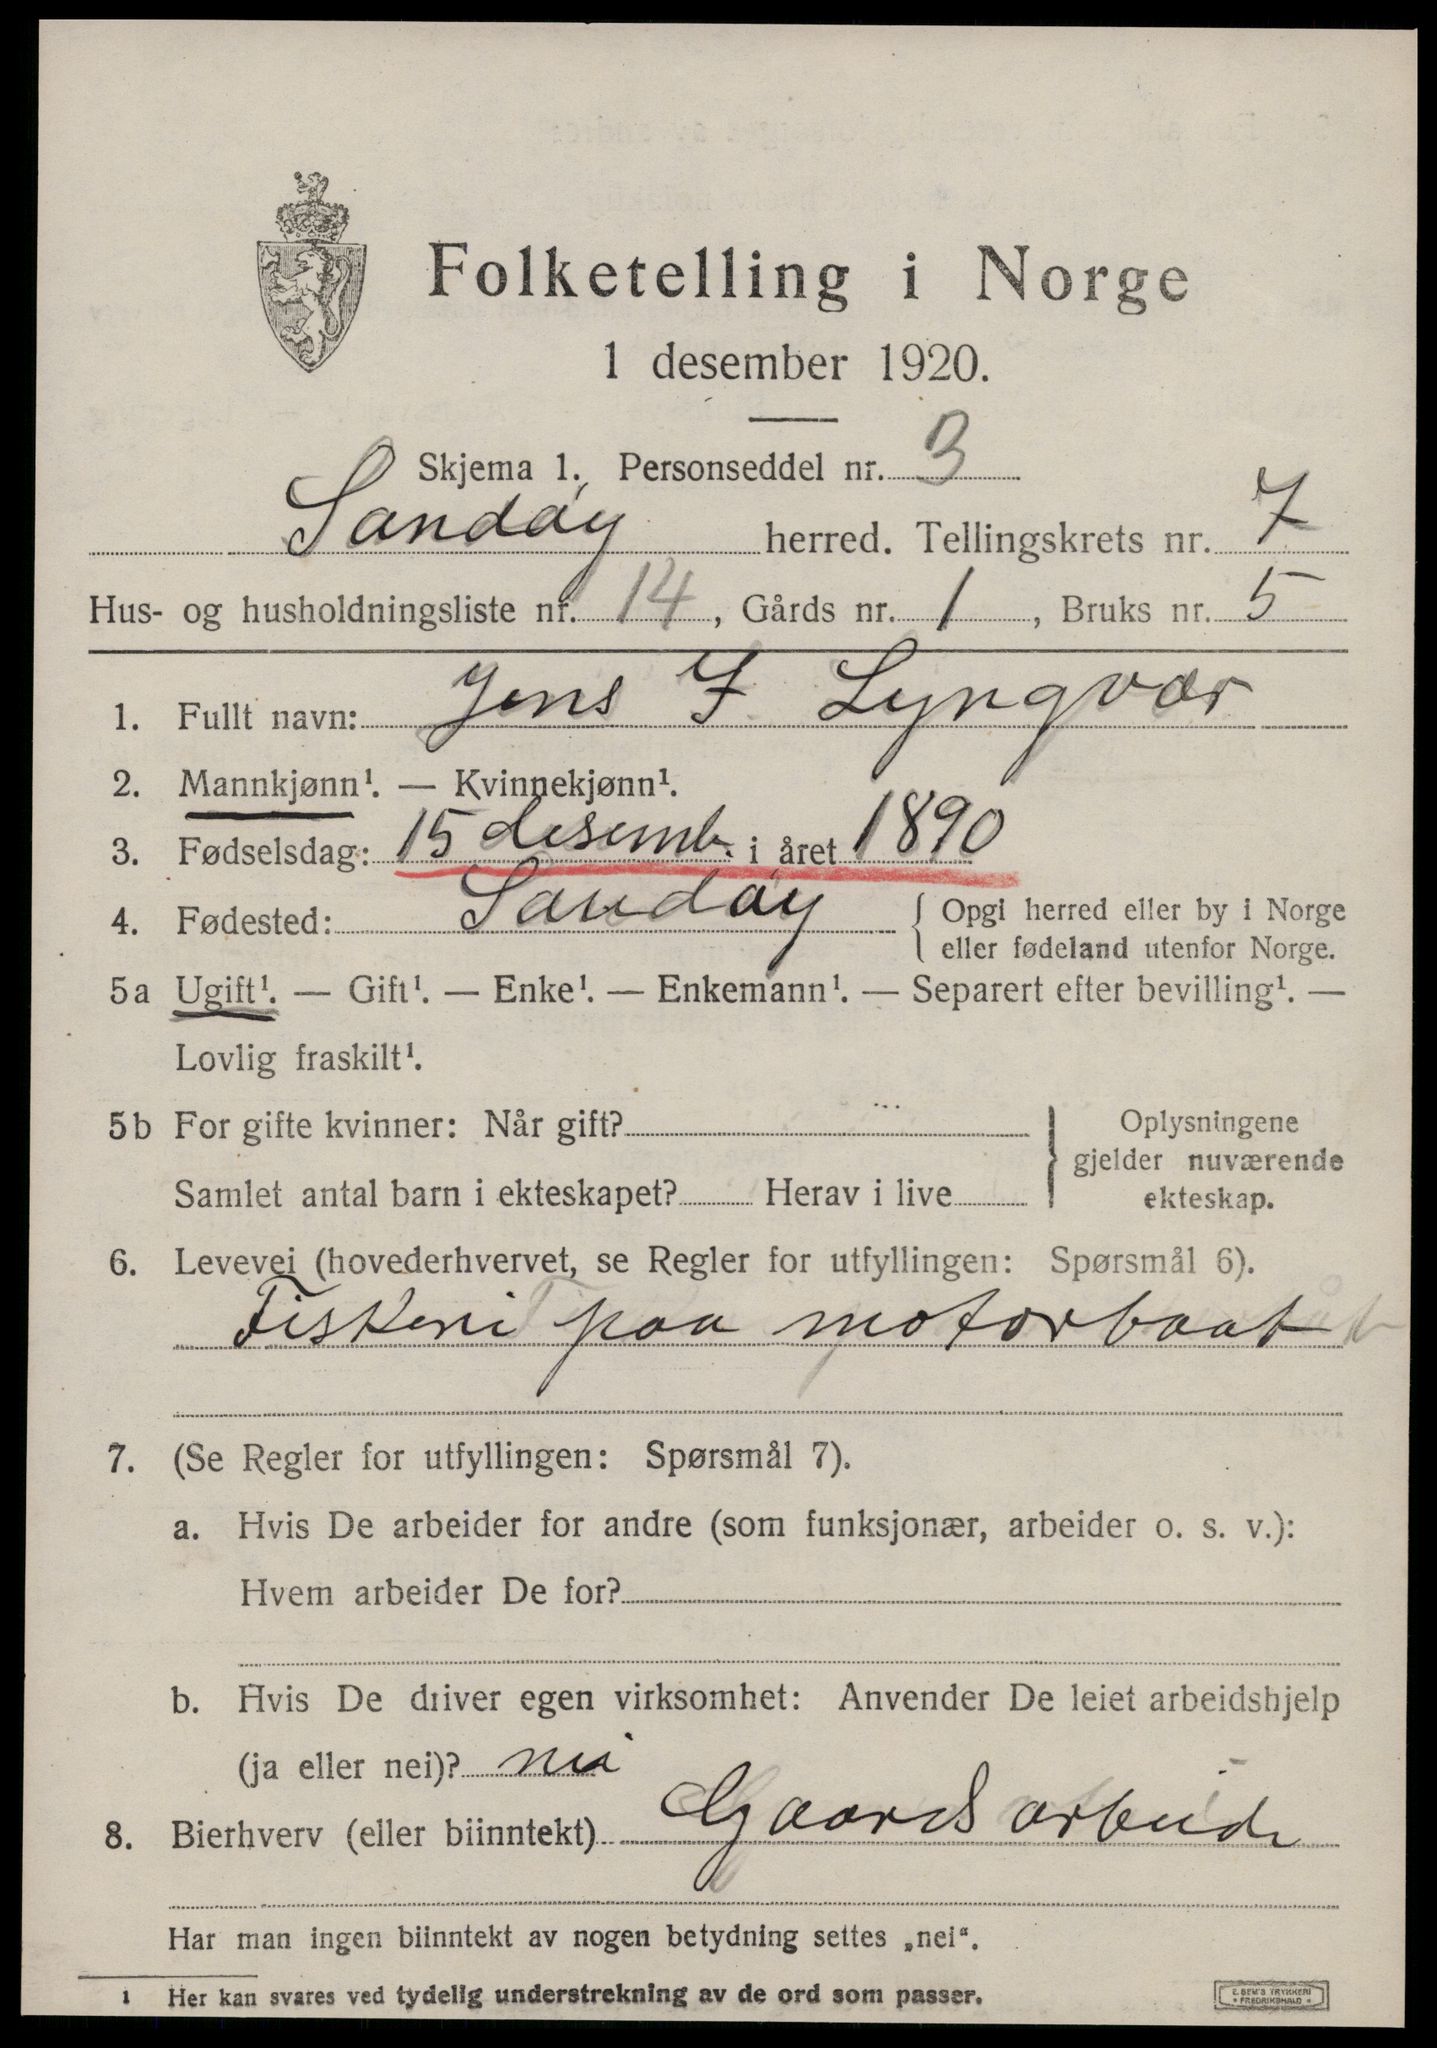 Folketelling i Norge
1 desember 1920.
Skjema 1. Personseddel nr. 3
Sandøy herred. Tellingskrets nr. 7
Hus- og husholdningsliste nr. 14, Gårds nr. 1, Bruks nr. 5
1. Fullt navn: Jens I Lyngvær
2. Mannkjønn¹. — Kvinnekjønn¹.
3. Fødselsdag: 15 desemb. i året 1890
4. Fødested: Sandøy { Opgi herred eller by i Norge
eller fødeland utenfor Norge.
5a Ugift¹. — Gift¹. — Enke¹. — Enkemann¹. — Separert efter bevilling¹. —
Lovlig fraskilt¹.
5b For gifte kvinner: Når gift?
Samlet antal barn i ekteskapet? Herav i live
} Oplysningene
gjelder nuværende
ekteskap.
6. Levevei (hovederhvervet, se Regler for utfyllingen: Spørsmål 6).
Fiskeri paa motorbaat
7. (Se Regler for utfyllingen: Spørsmål 7).
a. Hvis De arbeider for andre (som funksjonær, arbeider o. s. v.):
Hvem arbeider De for?
b. Hvis De driver egen virksomhet: Anvender De leiet arbeidshjelp
(ja eller nei)? nei
8. Bierhverv (eller biinntekt) Gaardsarbeide
Har man ingen biinntekt av nogen betydning settes „nei“.
1 Her kan svares ved tydelig understrekning av de ord som passer.
E. SEM'S TRYKKERI
• FREDRIKSHALD •